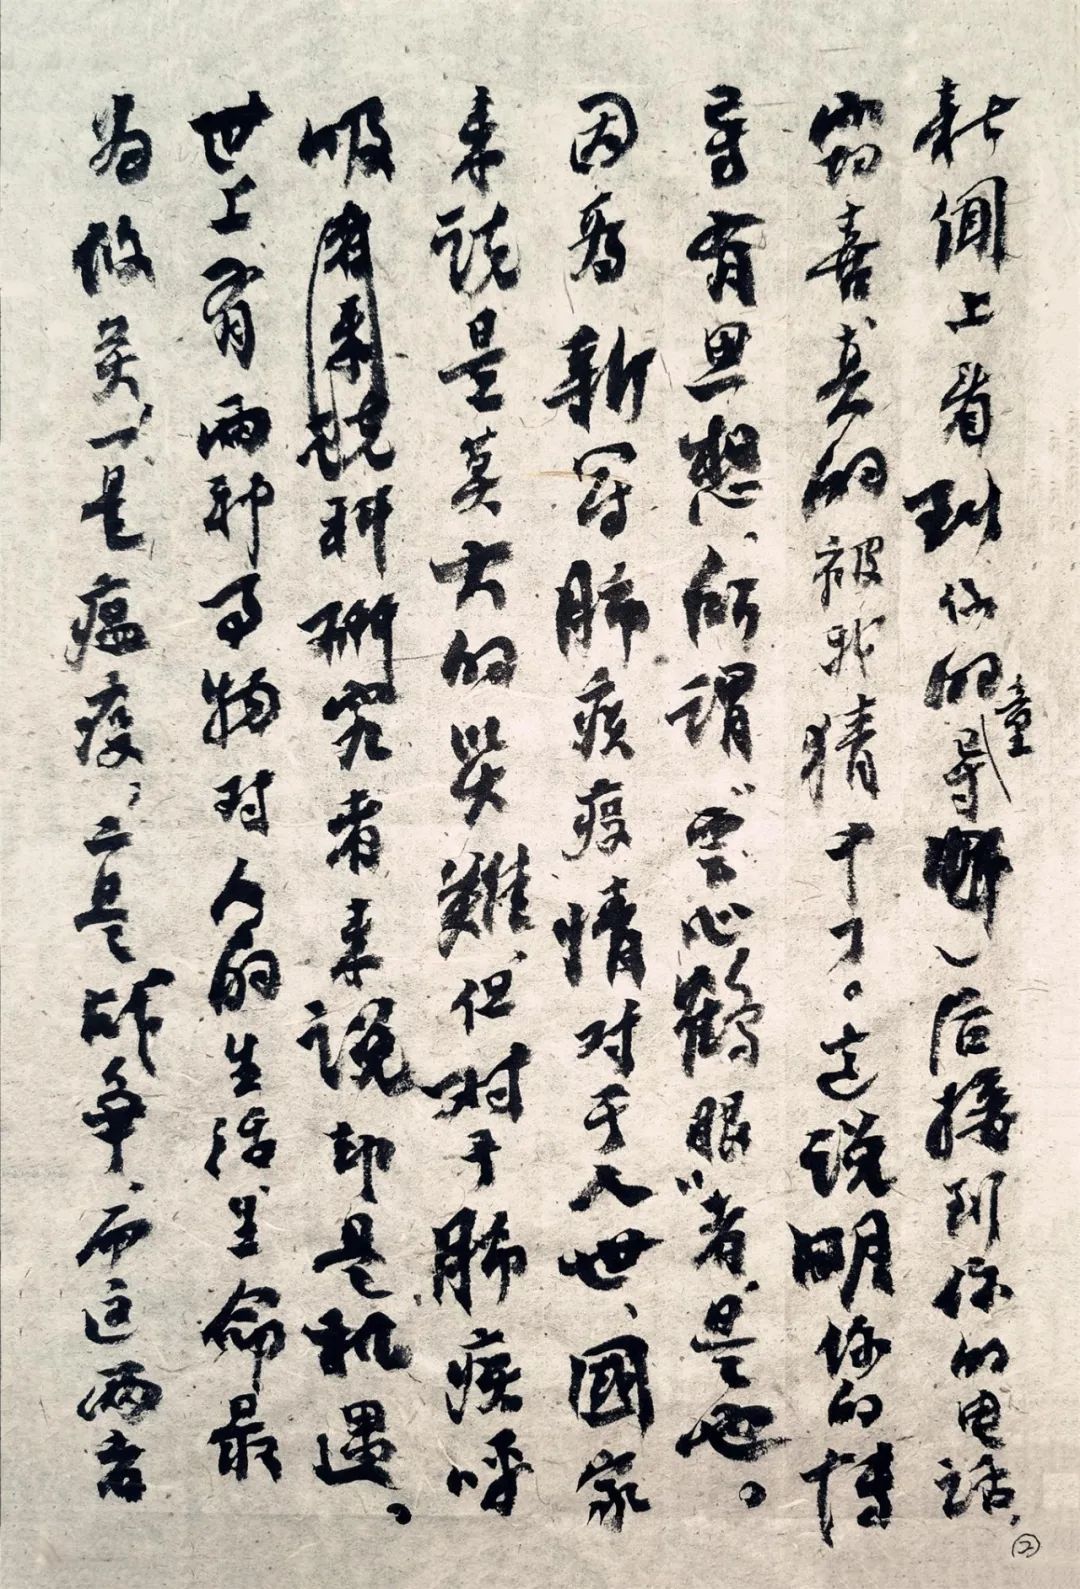 新闻上看到你的童导后接到你的电话,
窃喜,真的被我猜中了。这说明你的博
导有思想、所谓“雲心鹤眼”者,是也。
因为新冠肺痰疫情对于人世、國家
来说是莫大的災難,但对于肺痰呼
吸有来说科研究者来说却是机遇。
世上有兩种事物对人的生活生命最
为攸关,一是瘟疫,二是战争,而这两者
②